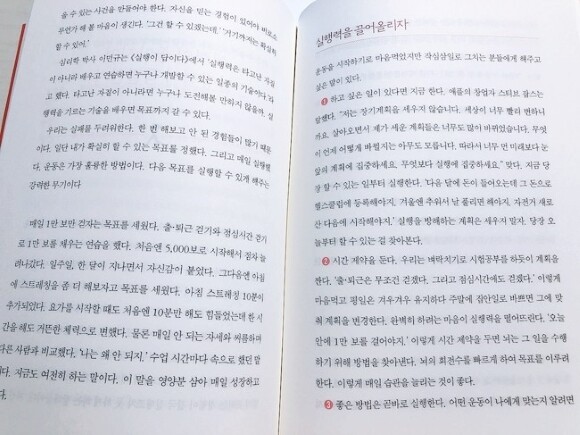 을 수 있는 사건을 만들어야 한다. 자신을 믿는 경험이 있어야 비로소
무언가 해 볼 마음이 생긴다. '그건 할 수 있겠는데.' '거기까지는 확실히
할 수 있어.'
심리학 박사 이민규는 《실행이 답이다》에서 '실행력은 타고난 자질
이 아니라 배우고 연습하면 누구나 개발할 수 있는 일종의 기술이다.'라
고 했다. 타고난 자질이 아니라면 누구나 도전해볼 만하지 않을까. 실
행력을 기르는 기술을 배우면 목표까지 갈 수 있다.
우리는 실패를 두려워한다. 한 번 해보고 안 된 경험들이 많기 때문
이다. 일단 내가 확실히 할 수 있는 목표를 정했다. 그리고 매일 실행했
다. 운동은 가장 훌륭한 방법이다. 다음 목표를 실행할 수 있게 해주는
강력한 무기이다
매일 1만 보만 걷자는 목표를 세웠다. 출·퇴근 걷기와 점심시간 걷기
로 1만 보를 채우는 연습을 했다. 처음엔 5,000보로 시작해서 점차 늘
려나갔다. 일주일, 한 달이 지나면서 자신감이 붙었다. 그다음엔 아침
에 스트레칭을 좀 더 해보자고 목표를 세웠다. 아침 스트레칭 10분이
추가되었다. 요가를 시작할 때도 처음엔 10분만 해도 힘들었는데 한 시
간을 해도 거뜬한 체력으로 변했다. 물론 매일 안 되는 자세와 씨름하며
다른 사람과 비교했다. '나는 왜 안 되지.' 수업 시간마다 속으로 했던 말
다. 지금도 여전히 하는 말이다. 이 말을 영양분 삼아 매일 성장하고
다.
실행력을 끌어올리자
운동을 시작하기로 마음먹었지만 작심삼일로 그치는 분들에게 해주고
싶은 말이 있다.
❶ 하고 싶은 일이 있다면 지금 한다. 애플의 창업자 스티브 잡스는
말했다. "저는 장기계획을 세우지 않습니다. 세상이 너무 빨리 변하니
까요. 살아오면서 제가 세운 계획들은 너무도 많이 바뀌었습니다. 무엇
이 언제 어떻게 바뀔지는 아무도 모릅니다. 따라서 너무 먼 미래보다 눈
앞의 계획에 집중하세요. 무엇보다 실행에 집중하세요." 맞다. 지금 당
장 할 수 있는 일부터 실행한다. '다음 달에 돈이 들어오는데 그 돈으로
헬스클럽에 등록해야지, 겨울엔 추워서 날 풀리면 해야지, 자전거 새로
산 다음에 시작해야지.' 실행을 방해하는 계획은 세우지 말자. 당장 오
늘부터 할 수 있는 걸 찾아본다.
❷ 시간 제약을 둔다. 우리는 벼락치기로 시험공부를 하듯이 계획을
한다. '출·퇴근은 무조건 걷겠다. 그리고 점심시간에도 걷겠다.' 이렇게
마음먹고 평일은 겨우겨우 유지하다 주말에 집안일로 바쁘면 그에 맞
춰 계획을 변경한다. 완벽히 하려는 마음이 실행력을 떨어뜨린다. '오늘
안에 1만 보를 걸어야지.' 이렇게 시간 제약을 두면 뇌는 그 일을 수행
하기 위해 방법을 찾아낸다. 뇌의 회전수를 빠르게 하여 목표를 이루려
한다. 이렇게 매일 습관을 늘리는 것이 좋다.
❸ 좋은 방법은 곧바로 실행한다. 어떤 운동이 나에게 맞는지 알려면